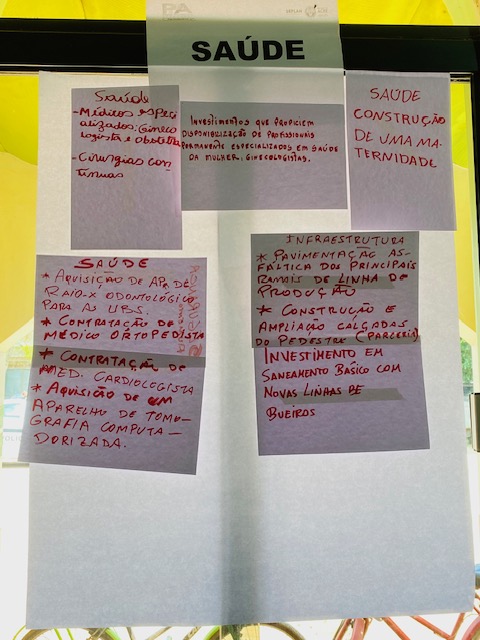 PA
SAÚDE
Saúde
-Médicos especi
alizados: Gineco
logista e obstetra
- Cirurgias con
tínuas
INVESTIMENTOS QUE PROPICIEM
DISPONIBILIZAÇÃO DE PROFISSIONAIS
PERMANENTE ESPECIALIZADOS EM SAÚDE
DA MULHER: GINECOLOGISTAS.
SAÚDE
CONSTRUÇÃO
DE UMA MA-
TERNIDADE
SAÚDE
* AQUISIÇÃO DE APa DE
RAIO-X ODONTOLÓGICO
PARA AS UBS.
* CONTRATAÇÃO DE
MÉDICO ORTOPEDISTA
* CONTRATAÇÃO DE
MED. CARDIOLOGISTA
* AQUISIÇÃO DE UM
APARELHO DE TOMO-
GRAFIA COMPUTA-
DORIZADA.
INFRAESTRUTURA
* PAVIMENTAÇÃO AS-
FÁLTICA DOS PRINCIPAIS
RAMAIS DE LINHA DE
PRODUÇÃO
* CONSTRUÇÃO E
AMPLIAÇÃO CALÇADAS
DO PEDESTRE (PARCERIA)
INVESTIMENTO EM
SANEAMENTO BÁSICO COM
NOVAS LINHAS DE
BUEIROS